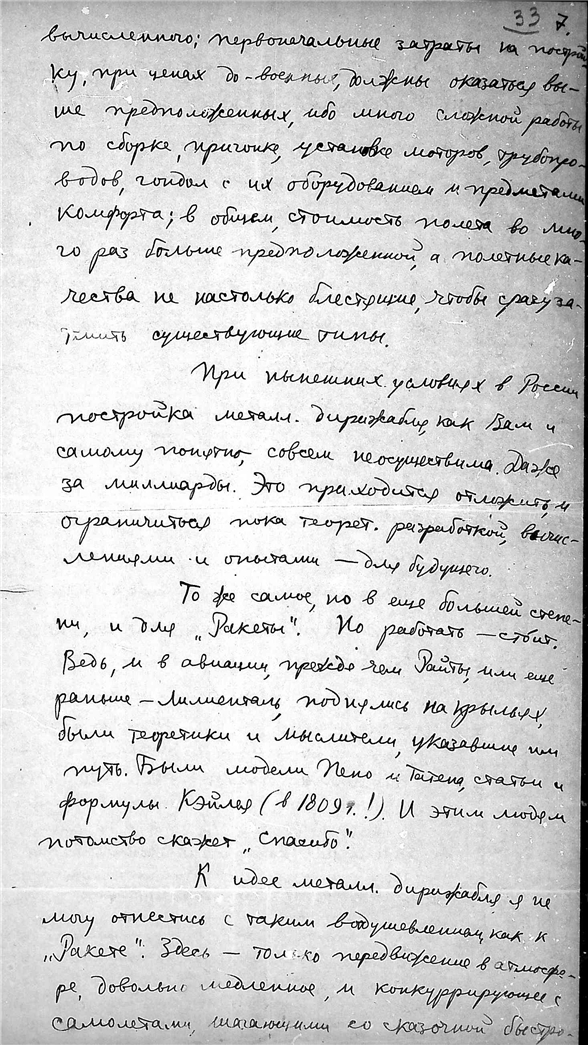 33 7.
вычисленного; первоначальные затраты на построй
ку, при ценах до-военных, должны оказаться вы-
ше предположенных, ибо много сложной работы
по сборке, пригонке, установке моторов, трубопро-
водов, гондол с их оборудованием и предметами
комфорта; в общем, стоимость полета во мно-
го раз больше предположенной, а полетные ка-
чества не настолько блестящие, чтобы сразу за-
тмить существующие типы.
При нынешних условиях в России
постройка металл. дирижабля, как Вам и
самому понятно, совсем неосуществима. Даже
за миллиарды. Это приходится отложить, и
ограничиться пока теорет. разработкой, вычис-
лениями и опытами — для будущего.
То же самое, но в еще большей степе-
ни, и для „Ракеты". Но работать — стоит.
Ведь, и в авиации, прежде чем Райты, или еще
раньше — Лилиенталь, поднялись на крыльях,
были теоретики и мыслители, указавшие им
путь. Были модели Пено и Татена, статьи и
формулы Кэйлея (в 1809 г.!). И этим людям
потомство скажет „Спасибо".
К идее металл. дирижабля я не
могу отнестись с таким воодушевлением, как к
„Ракете". Здесь — только передвижение в атмосфе-
ре, довольно медленное, и конкуррирующее с
самолетами, шагающими со сказочной быстро-